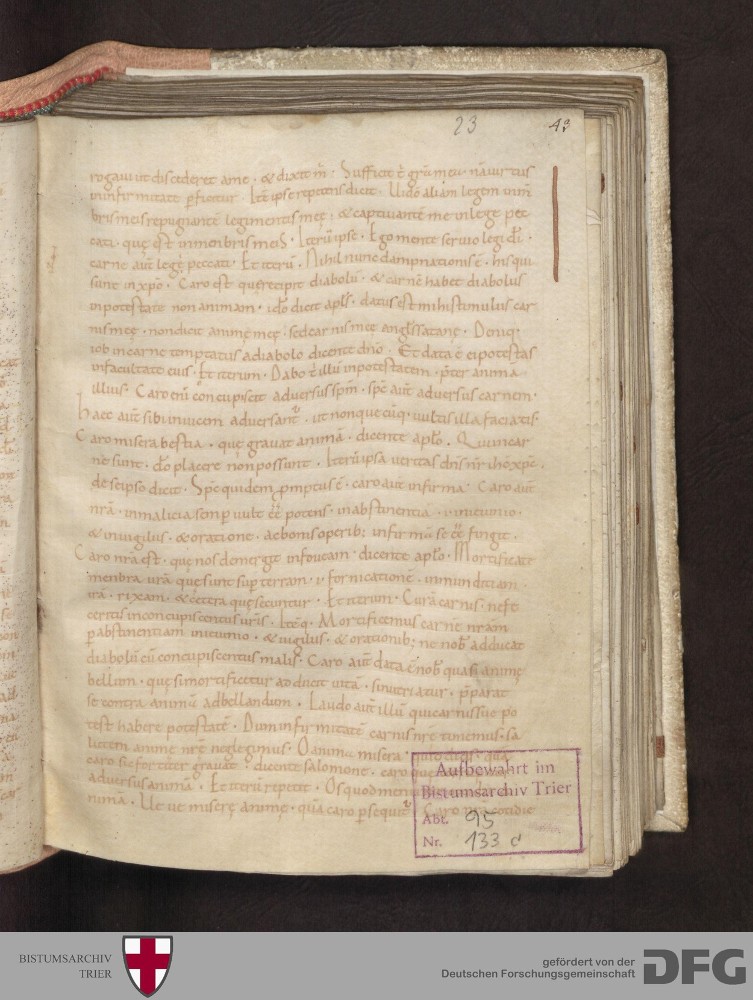 23 43
rogavi ut discederet a me · & dixit m · Sufficit ē gr̄a mea · nā virtus
in infirmitate ꝑficitur · Itē ipse repetens dicit · Video aliam legem in m̄
bris meis repugnantē legi mentis meę · & captivantē me in lege pec
cati · quę est in menbris meis · Iterū ipse · Ego mente servio legi dī ·
carne aut̄ legę peccati · Et iterū · Nihil nunc dampnationis ē · his qui
sunt in xp̄o · Caro est quę recipit diabolū · & carnē habet diabolus
in potestate non animam · ido dicit apl̄s · datus est mihi stimulus car
nis meę · non dicit animę meę · sed carnis meę angl̄s satanę · Deniq·
iob in carne temptatus a diabolo dicente dn̄o · Et data ē ei potestas
in facultate eius · Et iterum · Dabo t̄ illū in potestatem · p̄ter animā
illius · Caro enī concupiscit adversus sp̄m · sp̄c aut̄ adversus carnem ·
haec aut̄ sibi invicem adversant · ut non quecūq· vultis illa faciatis ·
Caro misera bestia · quę gravat animā · dicente aplo · Qui in car
ne sunt · do placere non possunt · Iterū ipsa veritas dn̄s nr̄ ihc̄ xp̄c ·
de se ipso dicit · Sp̄c quidem promptus ē · caro aut̄ infirma · Caro aut̄
nr̄a · in malicia semp vult eē potens · in abstinentia · in ieiunio ·
& in vigiliis · & oratione · ac bonis operib; infirmū se eē fingit ·
Caro nr̄a est · quę nos demergit in foveam · dicente aplo · Mortificate
menbra ur̄a quę sunt sup terram · i · fornicationē · inmunditiam
irā · rixam · & cetera quę secuntur · Et iterum · Curā carnis · ne fe
ceritis in concupiscentiis ur̄is · Iteq̄ · Mortificemus carnē nr̄am
ꝑ abstinentiam ieiunio · & vigiliis · & orationib; ne nob̄ adducat
diabolū cū concupiscentiis malis · Caro aut̄ data ē nob̄ quasi animę
bellum · quę si mortificetur adducit vitā · si nutriatur · p̄parat
se contra animā ad bellandum · Laudo aut̄ illū qui carnis suę po
test habere potestatē · Dum infirmitatē carnis nrę timemus · sa
lutem animę nrę neglegimus · O anima misera · quā
caro sic fortiter gravat · dicente salomone · caro que
adversus animā · Et iterū repetit · Os quod men
nimā · Ve ve miserę animę · quā caro ꝑsequit̄ · Caro nr̄a cotidie
Aufbewahrt im
Bistumsarchiv Trier
Abt. 95
Nr. 133 c
BISTUMSARCHIV
TRIER
gefördert von der
Deutschen Forschungsgemeinschaft
DFG